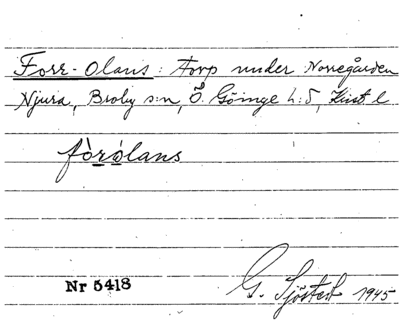 Forr-Olans: torp under Norregården
Njura, Broby s:n, Ö. Göinge h:d, Krist l
fòròlans
Nr 5418
G. Sjöstedt 1945